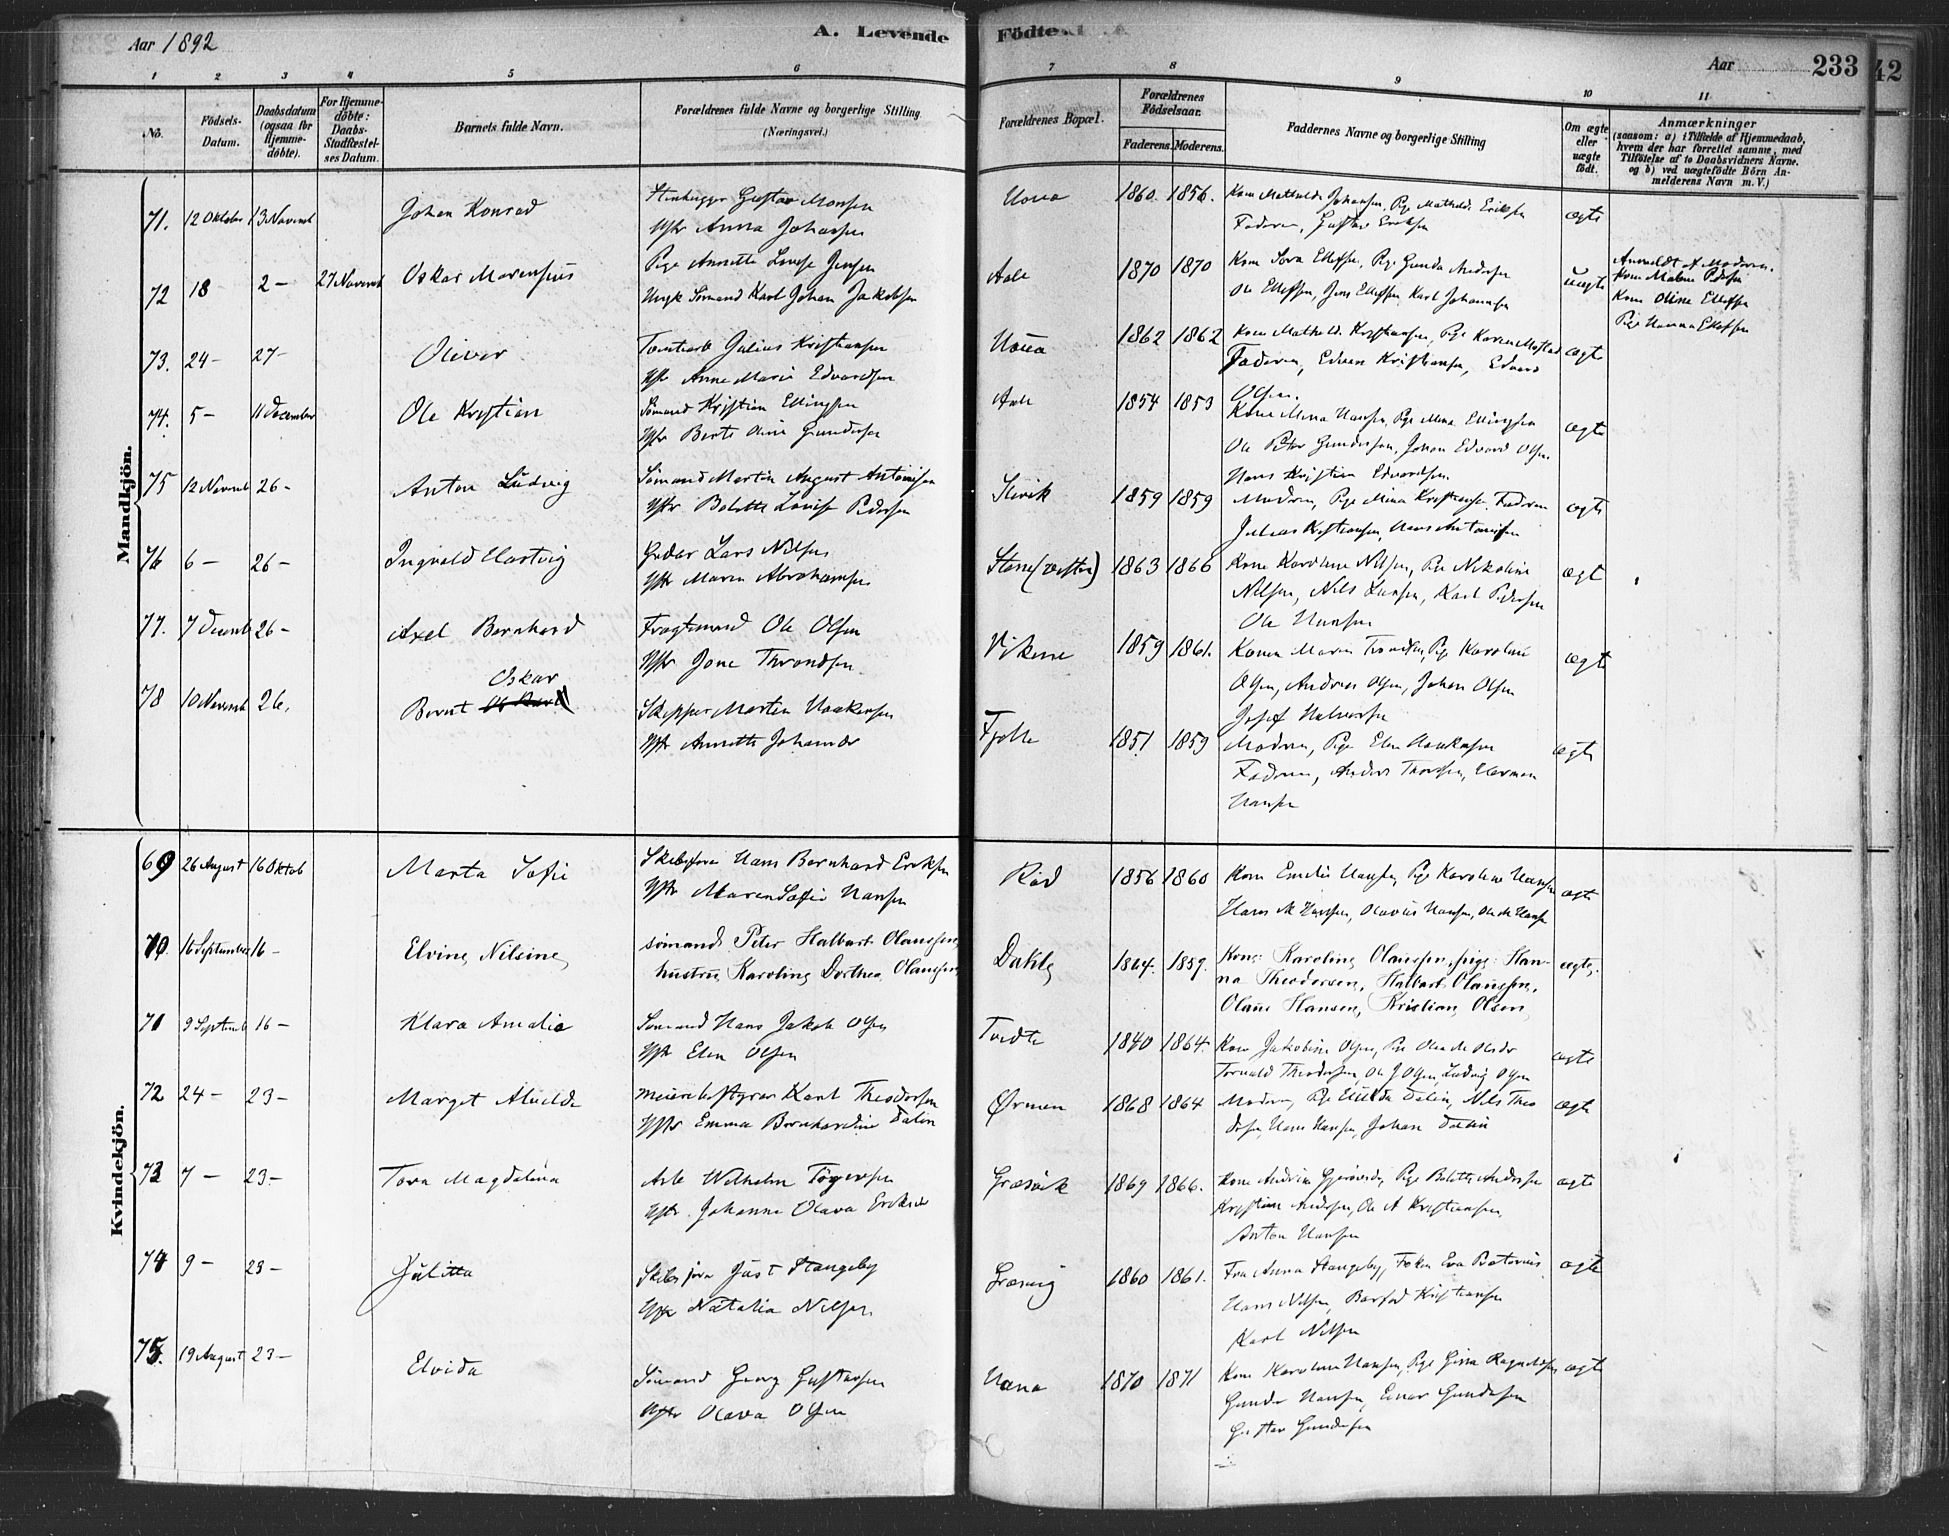 Aar 1892
A. Levende
Født
Aar
233
42
1
2
3
4
5
6
7
8
9
10
11
No.
Fødsels-
Datum.
Daabsdatum
(ogsaa for
Hjemme-
døbte).
For Hjemme-
døbte:
Daabs-
Stadfæstel-
ses Datum.
Barnets fulde Navn.
Forældrenes fulde Navne og borgerlige Stilling
(Næringsvei.)
Forældrenes Bopæl.
Forældrenes
Fødselsaar.
Faderens.
Moderens.
Faddernes Navne og borgerlige Stilling
Om ægte
eller
uægte
født.
Anmærkninger
(saasom: a) i Tilfælde af Hjemmedaab,
hvem der har forrettet samme, med
Tilføielse af to Daabsvidners Navne.
og b) ved uægtefødte Børn An-
melderens Navn m. V.)
Mandkjøn.
71. 12 Oktober 13 Novemb Johan Konrad
Stenhugger Gustav Monsen
Hstr Anna Johansen
1860 1856.
Kone Mathilde Johansen, Pige Mathilde Eriksen
Faderen, Gustav Eriksen
ægte
72 18 2 - 27 Novemb Oskar Marensius
Pige Annette Jensen
Ungk Sømand Karl Johan Jakobsen
1870 1870
Kone Ellefsen, Pige Gunda Andersen
Ole Ellefsen, Jens Ellefsen, Karl Johannsen
uægte
Anmeldt af Moderen.
Kone Pedersen
Kone Oline Ellefsen
Pige Hanna Ellefsen
73. 24 - 27 - Oliver
Julius Kristiansen
Hstr Anne Marie Edvardsen
1862 1862
Kone Mathilde Kristiansen, Pige Karen
Faderen, Edvard Kristiansen, Edvard
Olsen.
ægte
74. 5 - 11 December Ole Kristian
Sømand Kristian Ellingsen
Hstr Berte Oline Gundersen
1854 1853
Kone Mina Hansen, Pige Mina Ellingsen
Ole Peter Gundersen, Johan Edvard Olsen.
Hans Kristian Edvardsen.
ægte
75 12 Novemb 26 - Anton Ludvig
Sømand Martin August Antonisen
Hstr Bolette Lovise Pedersen
1859 1859
Moderen, Pige Mina Kristiansen, Faderen
Julius Kristiansen, Hans Antonisen
ægte
76 6 - 26 - Ingvald Hartvig
Lars Nilsen
Hstr Maren Abrahamsen
1863 1866
Kone Karoline Nilsen, Pige Nikoline
Nilsen, Nils Larsen, Karl Pedersen
Ole Hansen
ægt
77. 7 Decemb 26 - Axel Bernhard
Fragtmand Ole Olsen
Hstr Throndsen
Vikene
1859 1861.
Konen Maren Trondsen, Pige Karoline
Olsen, Andreas Olsen, Johan Olsen
Josef Halvorsen
ægt
78 10 Novemb 26.
Oskar
Bernt
Skipper Martin Haakensen
Hstr Annette
1851 1859
Moderen, Pige Elen Haakensen
Faderen, Anders Thorsen, Herman
Hansen
ægte
Kvindekjøn.
69 26 August 16 Oktob Marta Sofie
Hans Bernhard Eriksen
Hstr Maren Sofie Hansen
Rød
1856 1860
Kone Emilie Hansen, Pige Karoline Hansen
Hans M Hansen, Olavus Hansen, Ole M Hansen
ægte
70. 16 September 16 - Elvine Nilsine
sømand: Peter Halbart Olaussen,
hustru, Karoline Dorthea Olaussen
Dahle
1864. 1859.
Kone: Karoline Olaussen, pige: Han-
na Theodorsen, Halbart Olaussen.
Olaus Hansen, Kristian Olsen
ægte.
71 9 Septemb 16 - Klara Amalie
Sømand Hans Jakob Olsen
Hstr Elen Olsen
Tvedte
1840 1864.
Kone Jakobine Olsen,
Torvald Theodorsen, Ole J Olsen, Ludvig Olsen
ægte
72 24 - 23 - Margot Alvilde
Meieribestyrer Karl Theodorsen
Hstr Emma Bernhardine Dalin
Ørmen
1868 1864
Moderen, Pige Hulda Dalin, Nils Theo
dorsen, Hans Hansen, Johan Dalin
ægte
73 7 - 23 - Tora Magdalena
Arb Wilhelm Tøgersen
Hstr. Johanne Olava
1869 1866.
Kone Andrine, Pige Bolette Andersen
Kristian Andersen, Ole A Kristiansen,
Anton Hansen
ægte
74 9 - 23 - Julitta
Just Stangeby
Hstr Natalia Nilsen
Græsvig
1860 1861.
Fru Anna Stangeby, Frøken Eva
Hans Nilsen, Kristiansen
Karl Nilsen
ægte
75. 19 August 23 - Elvida
Sømand Georg Gustavsen
Hstr Olava Olsen
1870 1871
Kone Karoline Hansen, Pige Gina
Gunder Hansen, Einar Gundersen
Gustav Gundersen
ægte